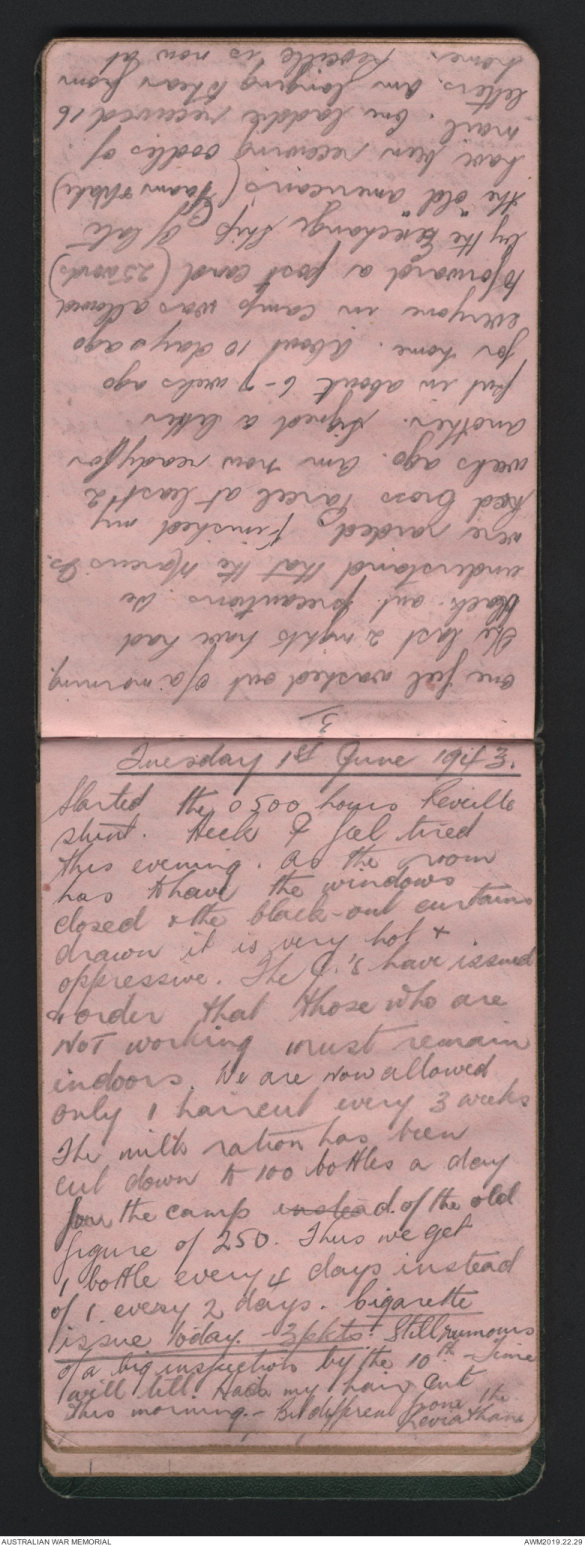 3
one feel washed out of a morning.
The last 2 nights have had
black-out precautions. We
understand that the Marcus Is.
were raided. Finished my
Red Cross Parcel at least 2
weeks ago. Am now ready for
another. Signed a letter
put in about 6-7 weeks ago
for home. About 10 days ago
everyone in camp was allowed
to forward a post card (25 words)
by the "Exchange Ship". Of late
the old americans (Guam & Wake)
have been receiving oodles of
mail. One laddie received 16
letters. Am longing to hear from
home. Reveille is now at
Tuesday 1st June 1943.
Started the 0500 hours Reveille
stunt. Heck I feel tired
this evening. As the room
has to have the windows
closed & the black-out curtains
drawn it is very hot &
oppressive. The J.'s have issued
order that those who are
NOT working must remain
indoors. We are now allowed
only 1 haircut every 3 weeks
The milk ration has been
cut down to 100 bottles a day
for the camp instead of the old
figure of 250. Thus we get
1 bottle every 4 days instead
of 1 every 2 days. Cigarette
issue today - 3 pkts. Still rumours
of a big inspection by the 10th - Time
will tell. Had my hair cut
this morning. - Bit different from the
Leviathan
AUSTRALIAN WAR MEMORIAL
AWM2019.22.29